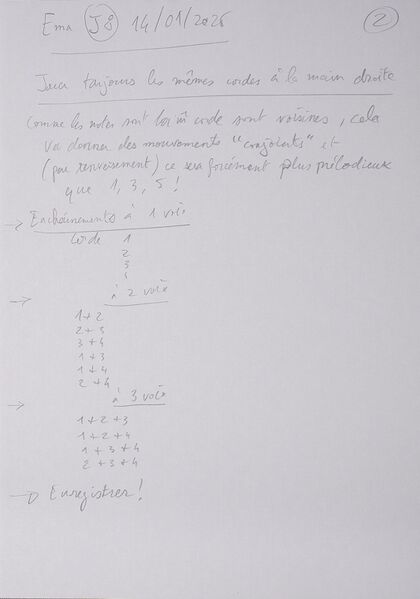 Ema J8 14/01/2026 2
Jouer toujours les mêmes cordes à la main droite
Comme les notes sont la m̂ corde sont voisines, cela
va donner des mouvements "conjoints" et
(par renversement) ce sera forcément plus mélodieux
que 1, 3, 5 !
→ Enchaînements à 1 voix
Corde 1
2
3
4
→ à 2 voix
1+2
2+3
3+4
1+3
1+4
2+4
→ à 3 voix
1+2+3
1+2+4
1+3+4
2+3+4
→ Enregistrer !